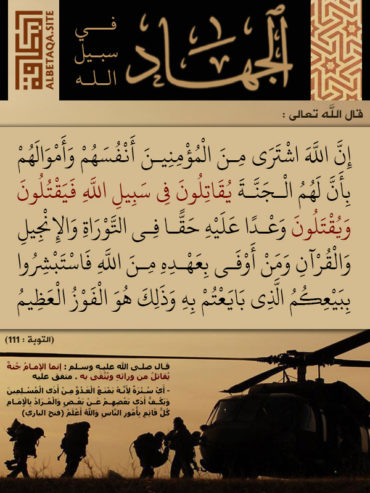 البطاقة
ALBETAQA.SITE
الجهاد
في
سبيل
الله
قال الله تعالى :
إِنَّ اللَّهَ اشْتَرَى مِنَ الْمُؤْمِنِينَ أَنْفُسَهُمْ وَأَمْوَالَهُمْ
بِأَنَّ لَهُمُ الْجَنَّةَ يُقَاتِلُونَ فِي سَبِيلِ اللَّهِ فَيَقْتُلُونَ
وَيُقْتَلُونَ وَعْدًا عَلَيْهِ حَقًّا فِي التَّوْرَاةِ وَالْإِنْجِيلِ
وَالْقُرْآنِ وَمَنْ أَوْفَى بِعَهْدِهِ مِنَ اللَّهِ فَاسْتَبْشِرُوا
بِبَيْعِكُمُ الَّذِي بَايَعْتُمْ بِهِ وَذَلِكَ هُوَ الْفَوْزُ الْعَظِيمُ
(التوبة : 111)
قال صلى الله عليه وسلم : إنما الإمامُ جُنةٌ
يُقاتَلُ من ورائِه ويُتَّقى به . متفق عليه
- أَيْ سُتْرَة لِأَنَّهُ يَمْنَع الْعَدُوّ مِنْ أَذَى الْمُسْلِمِينَ
وَيَكُفّ أَذَى بَعْضِهِمْ عَنْ بَعْض وَالْمُرَادُ بِالْإِمَامِ
كُلُّ قَائِمٍ بِأُمُورِ النَّاسِ وَاللهُ أَعْلَمُ (فتح الباري)